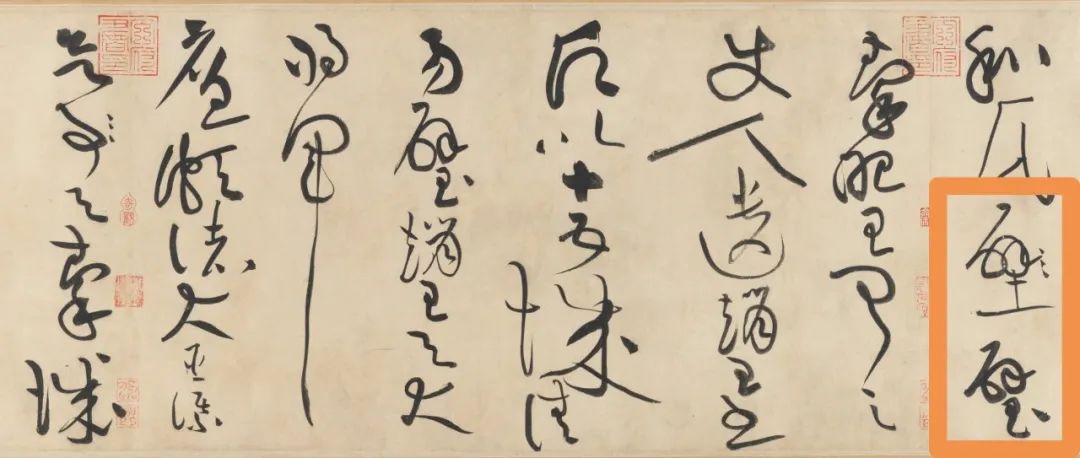 和氏壁璧
秦昭王聞之
使人遺趙王書
願以十五城請
易璧趙王與大
將軍
廉頗諸大臣謀
欲與秦城